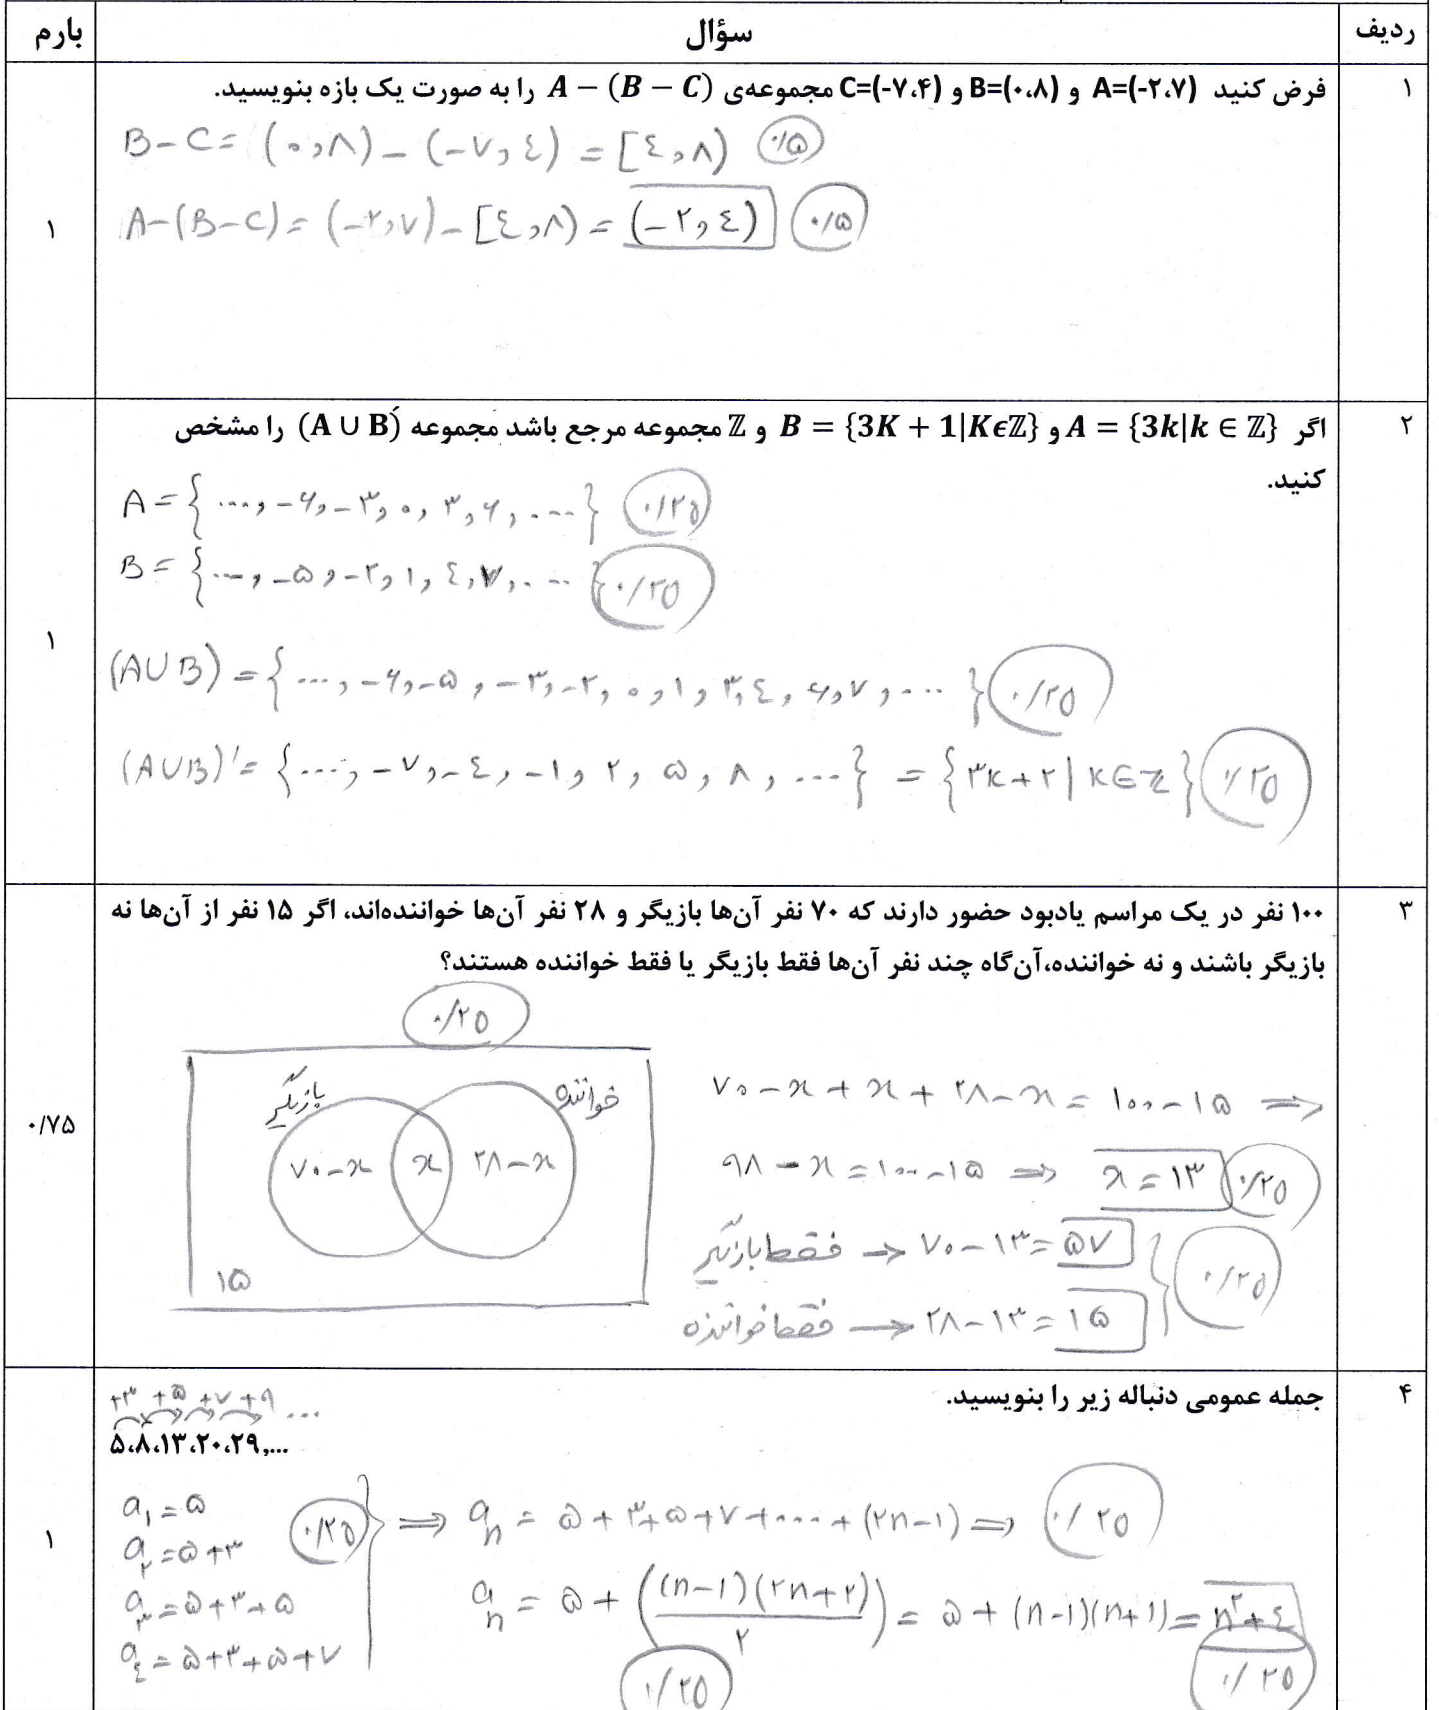 ردیف سؤال بارم
۱ فرض کنید A=(-۲،۷) و B=(۰،۸) و C=(-۷،۴) مجموعه‌ی A − (B − C) را به صورت یک بازه بنویسید.
B-C = (۰و۸) - (-۷و٤) = [٤و۸) ۰/۵
۱ A-(B-C) = (-۲و۷) - [٤و۸) = (-۲و٤) ۰/۵
۲ اگر A = {3k|k ∈ ℤ} و B = {3K + 1|Kϵℤ} و ℤ مجموعه مرجع باشد مجموعه (A ∪ B)́ را مشخص
کنید.
A = { ...و -۶و -۳و ۰و ۳و ۶و ... } ۰/۲۵
B = { ...و -۵و -۲و ۱و ٤و ۷و ... } ۰/۲۵
۱ (A∪B) = { ...و -۶و -۵و -۳و -۲و ۰و ۱و ۳و ٤و ۶و ۷و ... } ۰/۲۵
(A∪B)' = { ...و -۷و -٤و -۱و ۲و ۵و ۸و ... } = {۳K+۲ | K∈ℤ} ۰/۲۵
۳ ۱۰۰ نفر در یک مراسم یادبود حضور دارند که ۷۰ نفر آن‌ها بازیگر و ۲۸ نفر آن‌ها خواننده‌اند، اگر ۱۵ نفر از آن‌ها نه
بازیگر باشند و نه خواننده،آن‌گاه چند نفر آن‌ها فقط بازیگر یا فقط خواننده هستند؟
۰/۲۵
بازیگر خواننده
۷۰-x x ۲۸-x
۱۵
۷۰-x+x+۲۸-x = ۱۰۰-۱۵ ⇒
۹۸-x = ۱۰۰-۱۵ ⇒ x=۱۳ ۰/۲۵
فقط بازیگر → ۷۰-۱۳=۵۷
فقط خواننده → ۲۸-۱۳=۱۵ } ۰/۲۵
۰/۷۵
۴ جمله عمومی دنباله زیر را بنویسید.
+۳ +۵ +۷ +۹ ...
۵،۸،۱۳،۲۰،۲۹,...
a₁=۵
a₂=۵+۳
a₃=۵+۳+۵
a₄=۵+۳+۵+۷
۰/۲۵ } ⇒ aₙ = ۵+۳+۵+۷+...+(۲n-۱) ⇒ ۰/۲۵
aₙ = ۵ + ((n-۱)(۲n+۲)/۲) = ۵ + (n-۱)(n+۱) = n²+٤
۰/۲۵ ۰/۲۵
۱